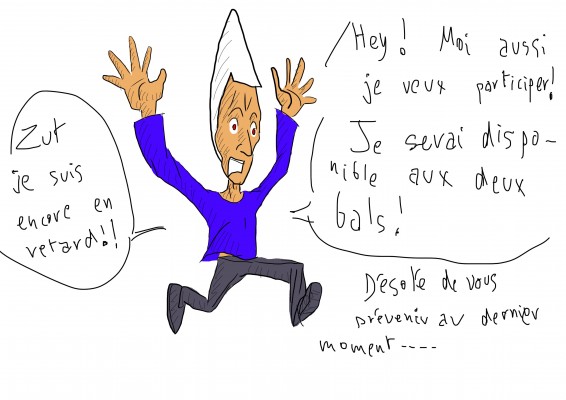 Zut
je suis
encore en
retard!!
Hey! Moi aussi
je veux participer!
Je serai dispo-
nible aux deux
bals!
Désolé de vous
prévenir au dernier
moment----